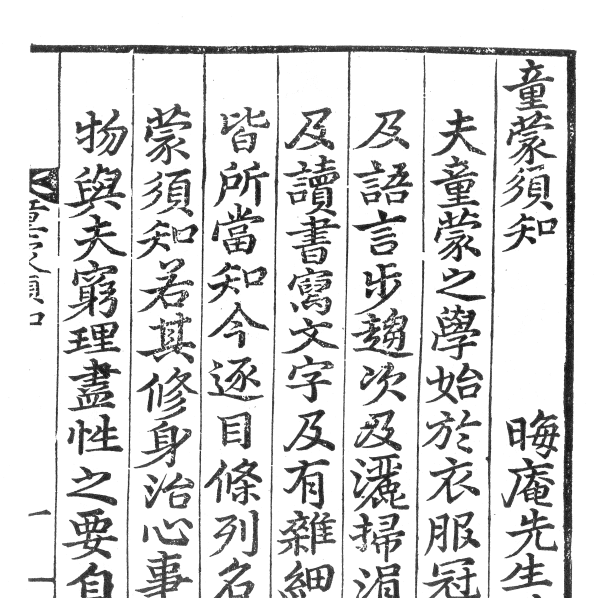 童蒙須知 晦庵先生
夫童蒙之學始於衣服冠
及語言步趨次及灑掃涓
及讀書寫文字及有雜細
皆所當知今逐目條列名
蒙須知若其修身治心事
物與夫窮理盡性之要自